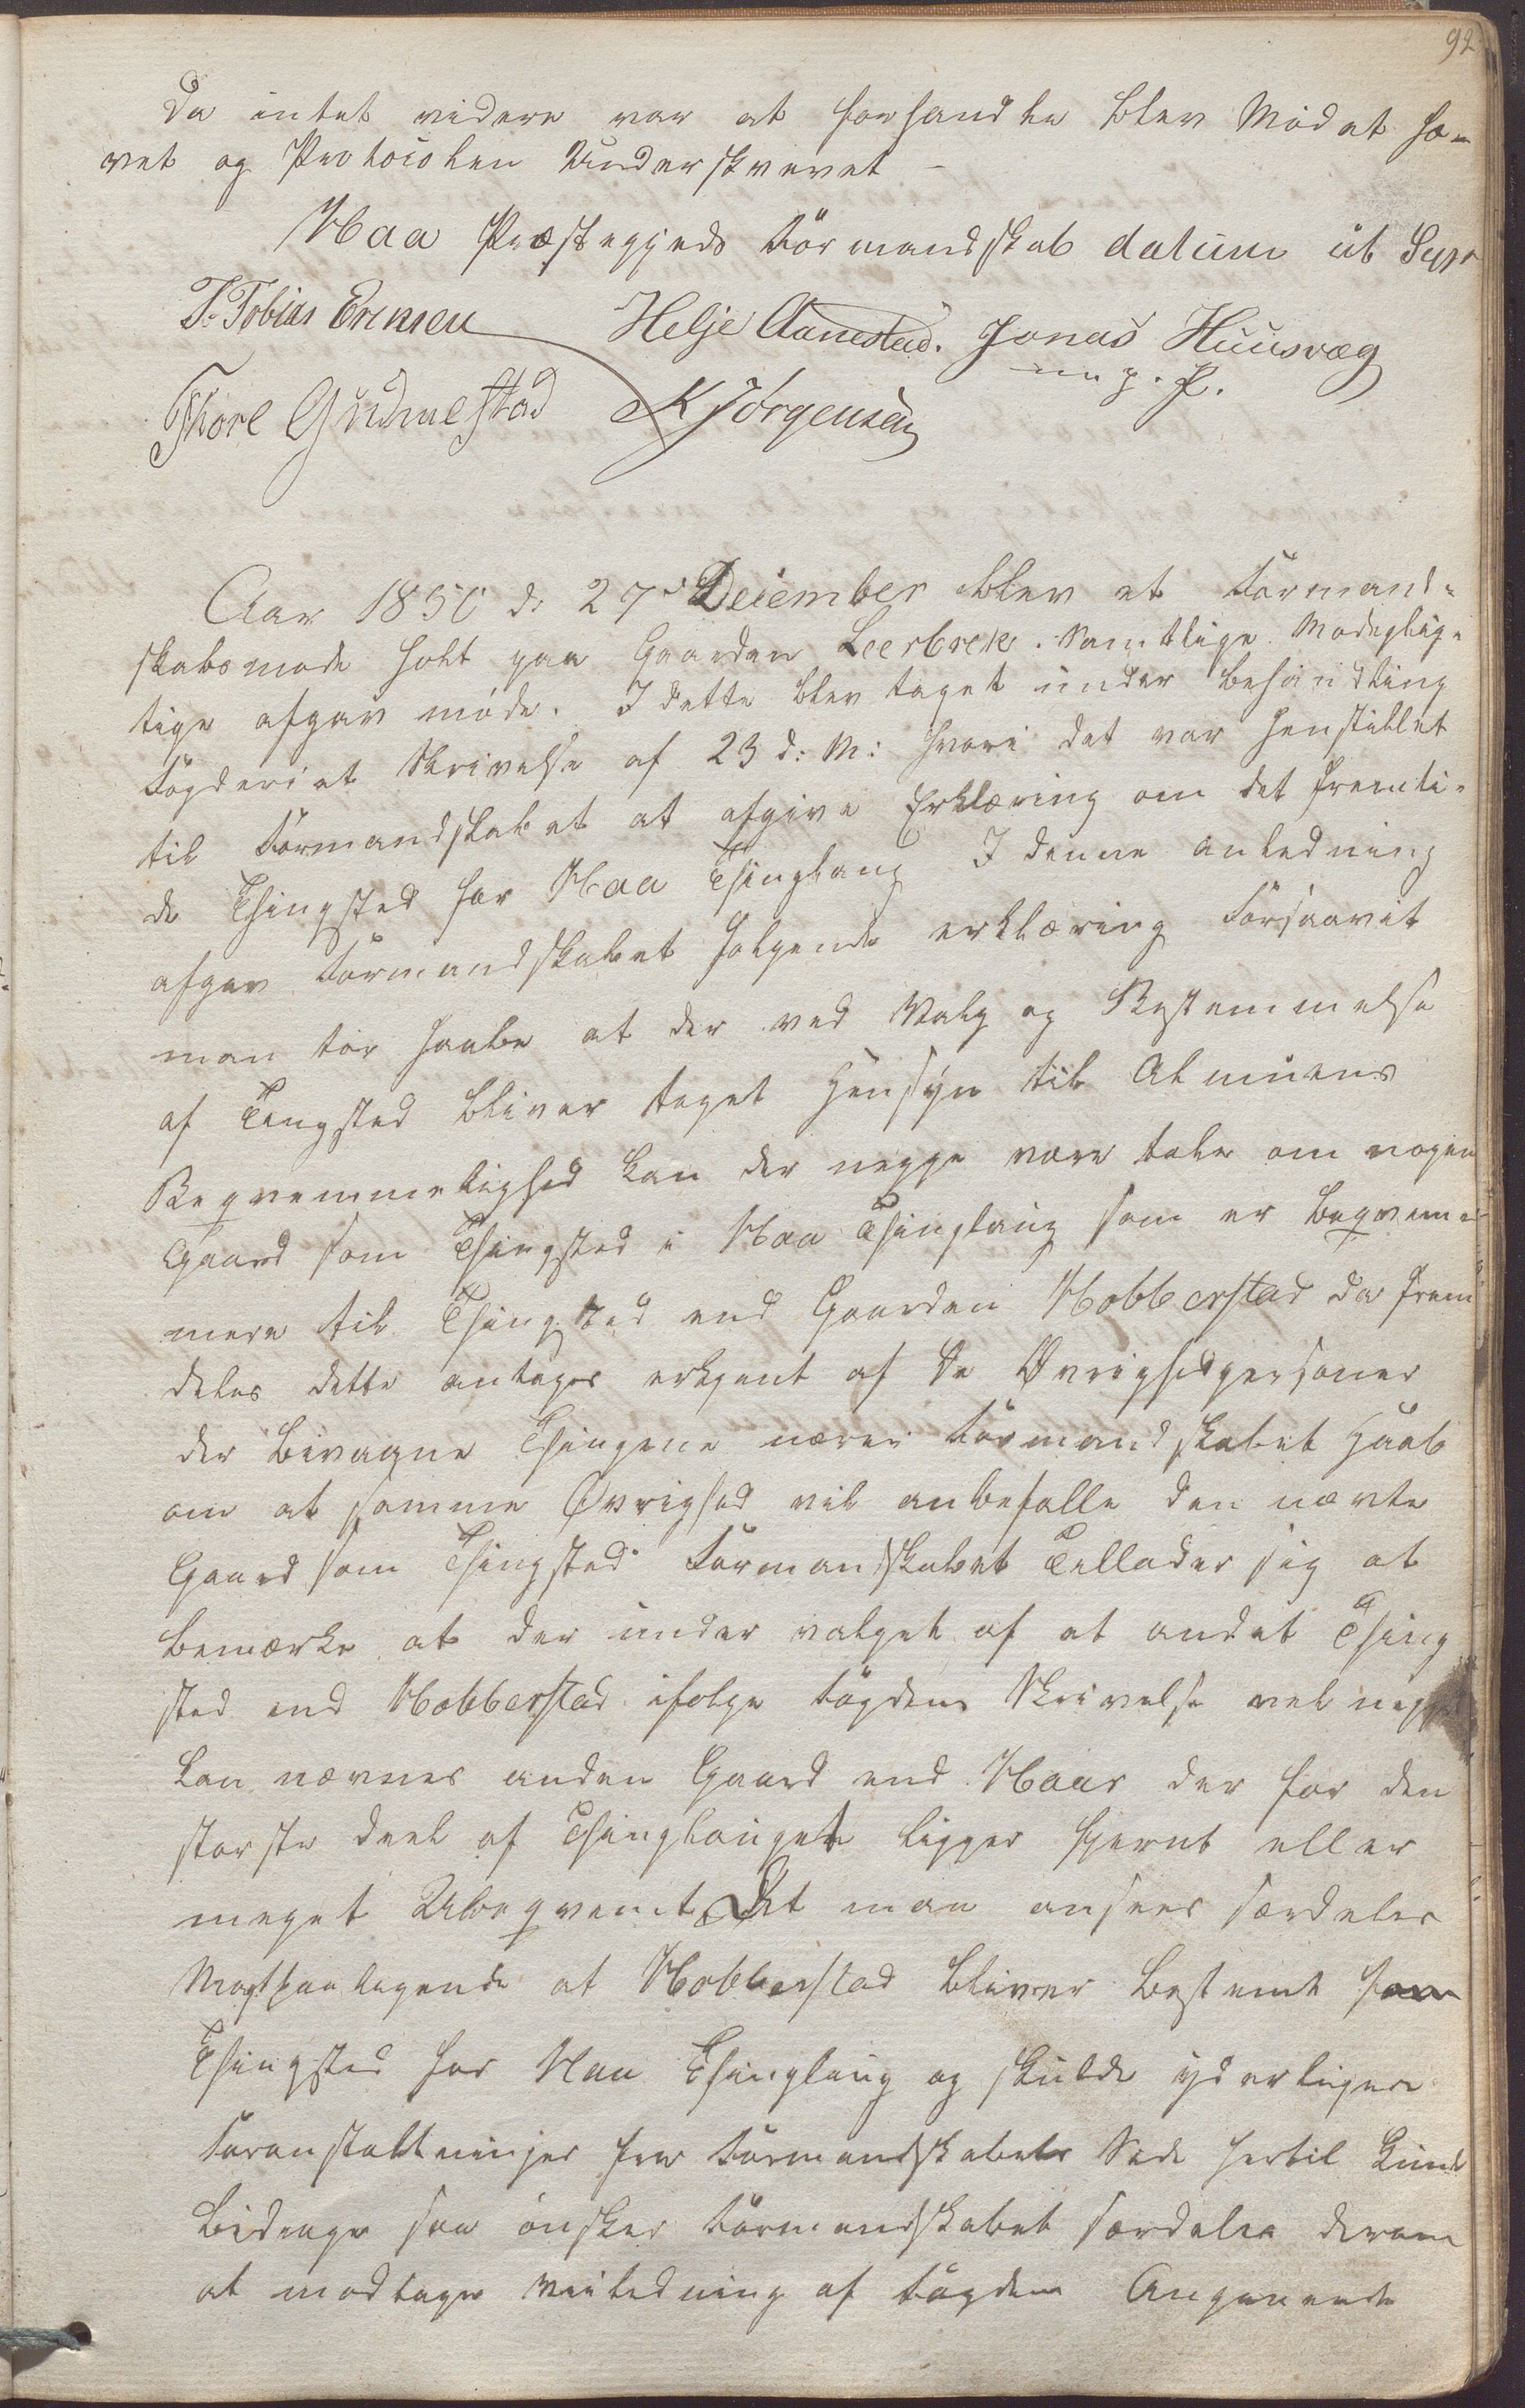 92
Da intet videre var at forhandle blev Mødet hæ-
vet og Protocolen Underskrevet –
Haa Præstegjeds Formandskab datum ut Supr
T. Tobias Evensen Helje Aanestad. Jonas Huusvæg
m. p. P.
Thore Gudmestad K Jörgensen
Aar 1850 d. 27de December blev et Formand-
skabsmøde holt paa Gaarden Leerbrek. Samtlige Mødeplig-
tige afgav møde. I dette blev taget under Behandling
Fogderiet Skrivelse af 23 d: M: hvori det var henstillet
til Formandskabet at afgive Erklæring om det fremti-
de Thingsted for Haa Thinglaug I denne anledning
afgav Formandskabet følgende erklæring Forsaavit
man tør haabe at der ved Valg og Bestemmelse
af Tingsted bliver taget Hensyn til Almuens
Beqvemmelighed kan der neppe være tale om nogen
Gaard som Thingsted i Haa Thinglaug som er beqvem-
mere til Thingsted end Gaarden Hobberstad da frem
deles dette antages erkjent af de Øvrighedpersoner
der Bivaane Thingene nærer Formandskabet Haab
om at samme Øvrighed vil anbefalle den nævte
Gaard som Thingsted. Formandskabet Tillader sig at
bemærke at der under valget af et andet Thing
sted end Hobberstad ifølge Fogdens Skrivelse vel neppe
kan nævnes anden Gaard end Haar der for den
største deel af Thinglauget ligger fjernt eller
meget Ubeqvemt. Det man ansees særdeles
Magtpaaligende at Hobberstad bliver bestemt som
Thingsted for Haa Thinglaug og skulde yderligere
Foranstaltninger fra Formandskabets Side hertil kunde
bidrage saa ønsker Formandskabet særdeles derom
at modtage Veiledning af Fogden Angaaende